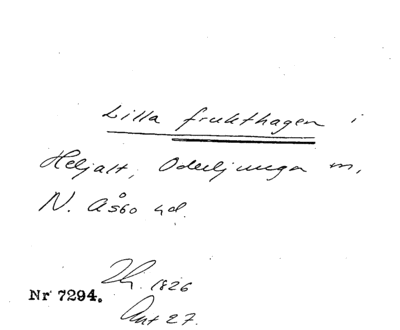 Lilla frukthagen i
Heljalt, Oderljunga m,
N. Åsbo hd.
1826
Nr 7294.
Ant 27.